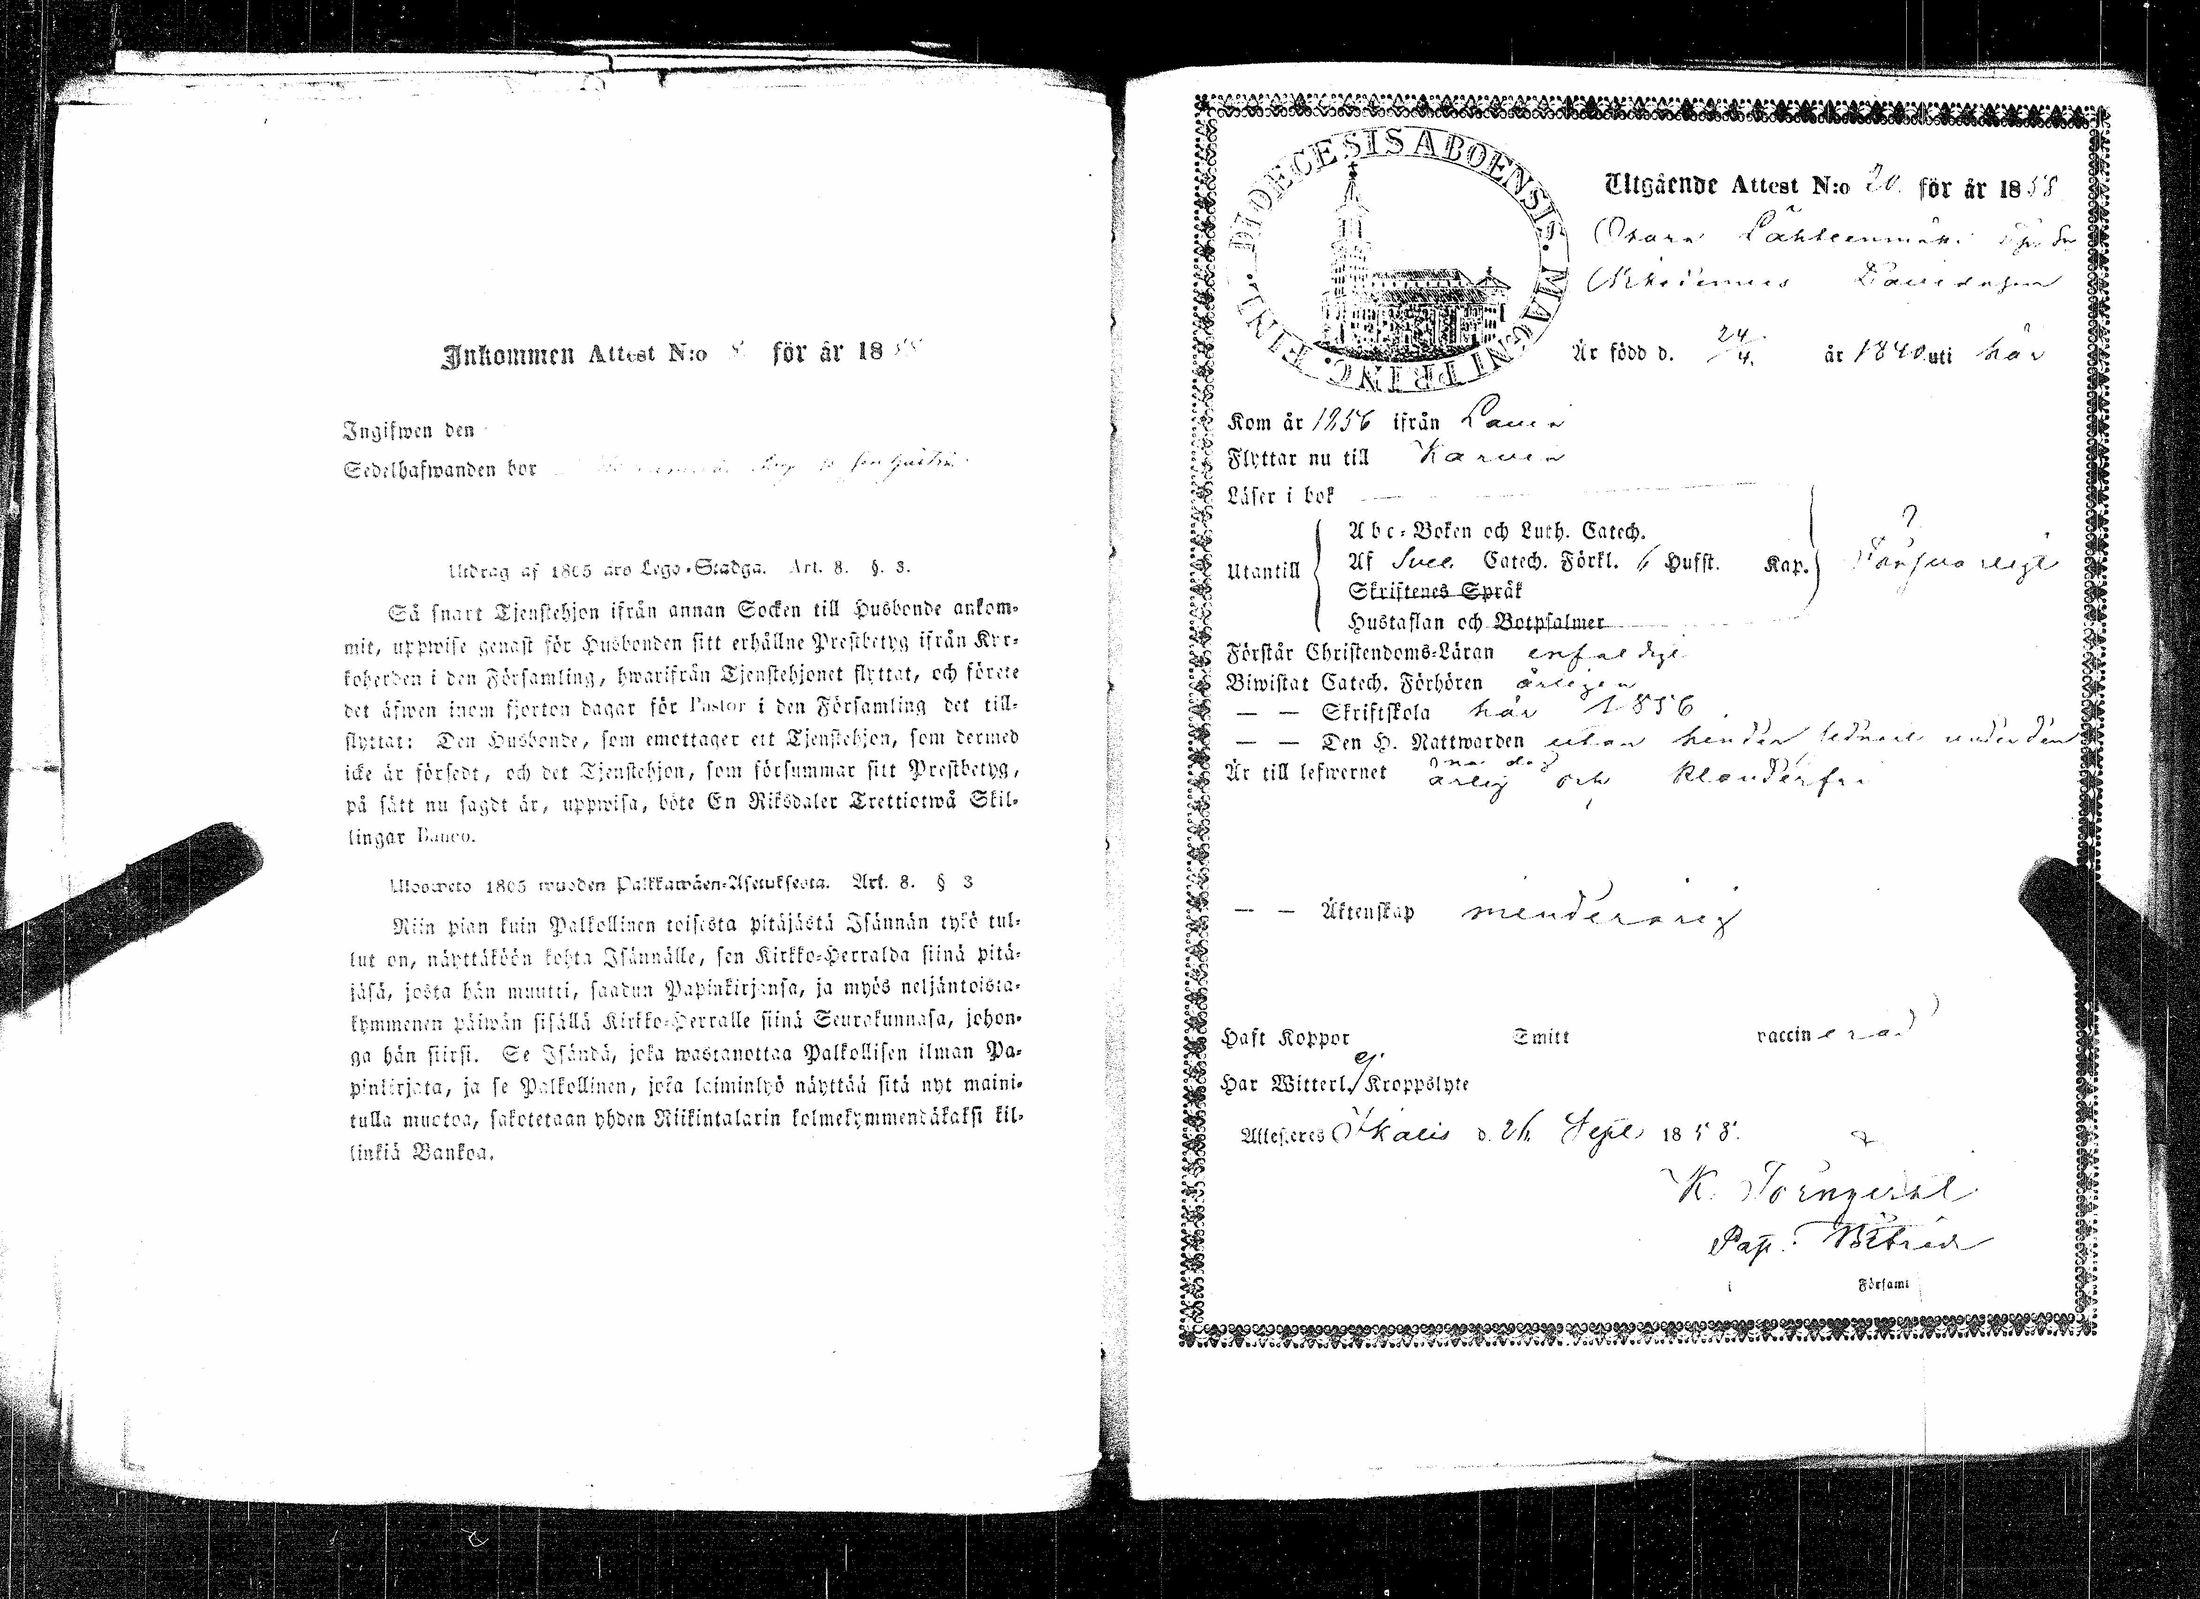 Inkommen Attest N:o 8. för år 1858
Ingifwen den
Sedelhafwanden bor
Utdrag af 1805 års Lego-Stadga. Art. 8. §. 3.
Så snart Tjenstehjon ifrån annan Socken till Husbonde ankom-
mit, uppwise genast för Husbonden sitt erhållne Prestbetyg ifrån Kyr-
koherden i den Församling, hwarifrån Tjenstehjonet flyttat, och förete
det äfwen inom fjorton dagar för Pastor i den Församling det till-
flyttat: Den Husbonde, som emottager ett Tjenstehjon, som dermed
icke är försedt, och det Tjenstehjon, som försummar sitt Prestbetyg,
på sätt nu sagdt är, uppwisa, böte En Riksdaler Trettiotwå Skil-
lingar Banco.
Ulosweto 1805 wuoden Palkkawäen-Asetuksesta. Art. 8. § 3
Niin pian kuin Palkollinen toisesta pitäjästä Isännän tykö tul-
lut on, näyttäköön kohta Isännälle, sen Kirkko-Herralda siinä pitä-
jäsä, josta hän muutti, saadun Papinkirjansa, ja myös neljäntoista-
kymmenen päiwän sisällä Kirkko-Herralle siinä Seurakunnasa, johon-
ga hän siirsi. Se Isändä, joka wastanottaa Palkollisen ilman Pa-
pinkirjata, ja se Palkollinen, joka laiminlyö näyttää sitä nyt maini-
tulla muotoa, sakotetaan yhden Riikintalarin kolmekymmendäkaksi kil-
linkiä Bankoa.
DIOECESIS ABOENSIS. MAGNI PRINC. FINL.
Utgående Attest N:o 20. för år 1858
Lähteenmäki
Nikodemus Davidsson
Är född d. 24/4. år 1840 uti här
Kom år 1856 ifrån Lavia
Flyttar nu till Karvia
Läser i bok
Abc-Boken och Luth. Catech.
Utantill Af Sveb. Catech. Förkl. 6 Hufst. Kap. Försvarligt
Skriftenes Språk
Hustaflan och Botpsalmer
Förstår Christendoms-Läran enfaldigt
Biwistat Catech. Förhören årligen
— — Skriftskola här 1856
— — Den H. Nattwarden utan hinder
Är till lefwernet ärlig och klanderfri
— — Äktenskap minderårig
Haft Koppor Smitt vaccinerad
Har Witterl. ej Kroppslyte
Attesteres Ikalis d. 26 Sept. 1858.
K. Törnqvist
Församl